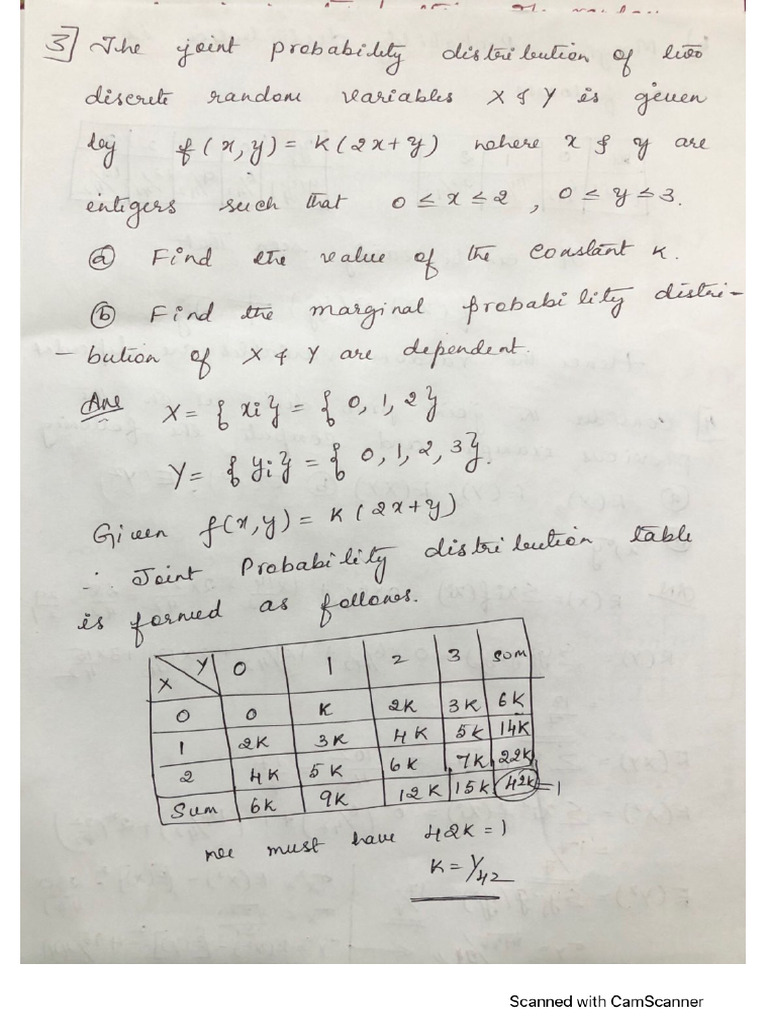 3] The joint probability distribution of two
discrete random variables X & Y is given
by f(x,y) = K(2x+y) where x & y are
integers such that 0 ≤ x ≤ 2, 0 ≤ y ≤ 3.
ⓐ Find the value of the constant K.
ⓑ Find the marginal probability distri-
-bution of X & Y are dependent.
Ans X = { xi } = { 0, 1, 2 }
Y = { yi } = { 0, 1, 2, 3 }.
Given f(x,y) = K(2x+y)
∴ Joint Probability distribution table
is formed as follows.
X Y 0 1 2 3 Sum
0 0 K 2K 3K 6K
1 2K 3K 4K 5K 14K
2 4K 5K 6K 7K 22K
Sum 6K 9K 12K 15K 42K = 1
we must have 42K = 1
K = 1/42
Scanned with CamScanner